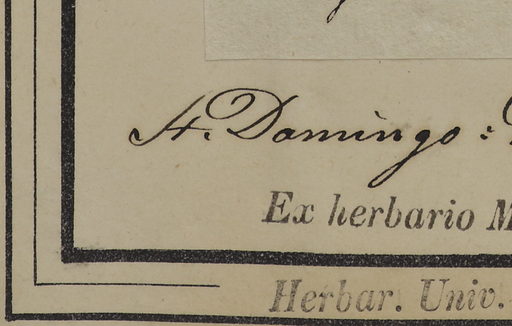 St. Domingo :
Ex herbario M
Herbar. Univ.